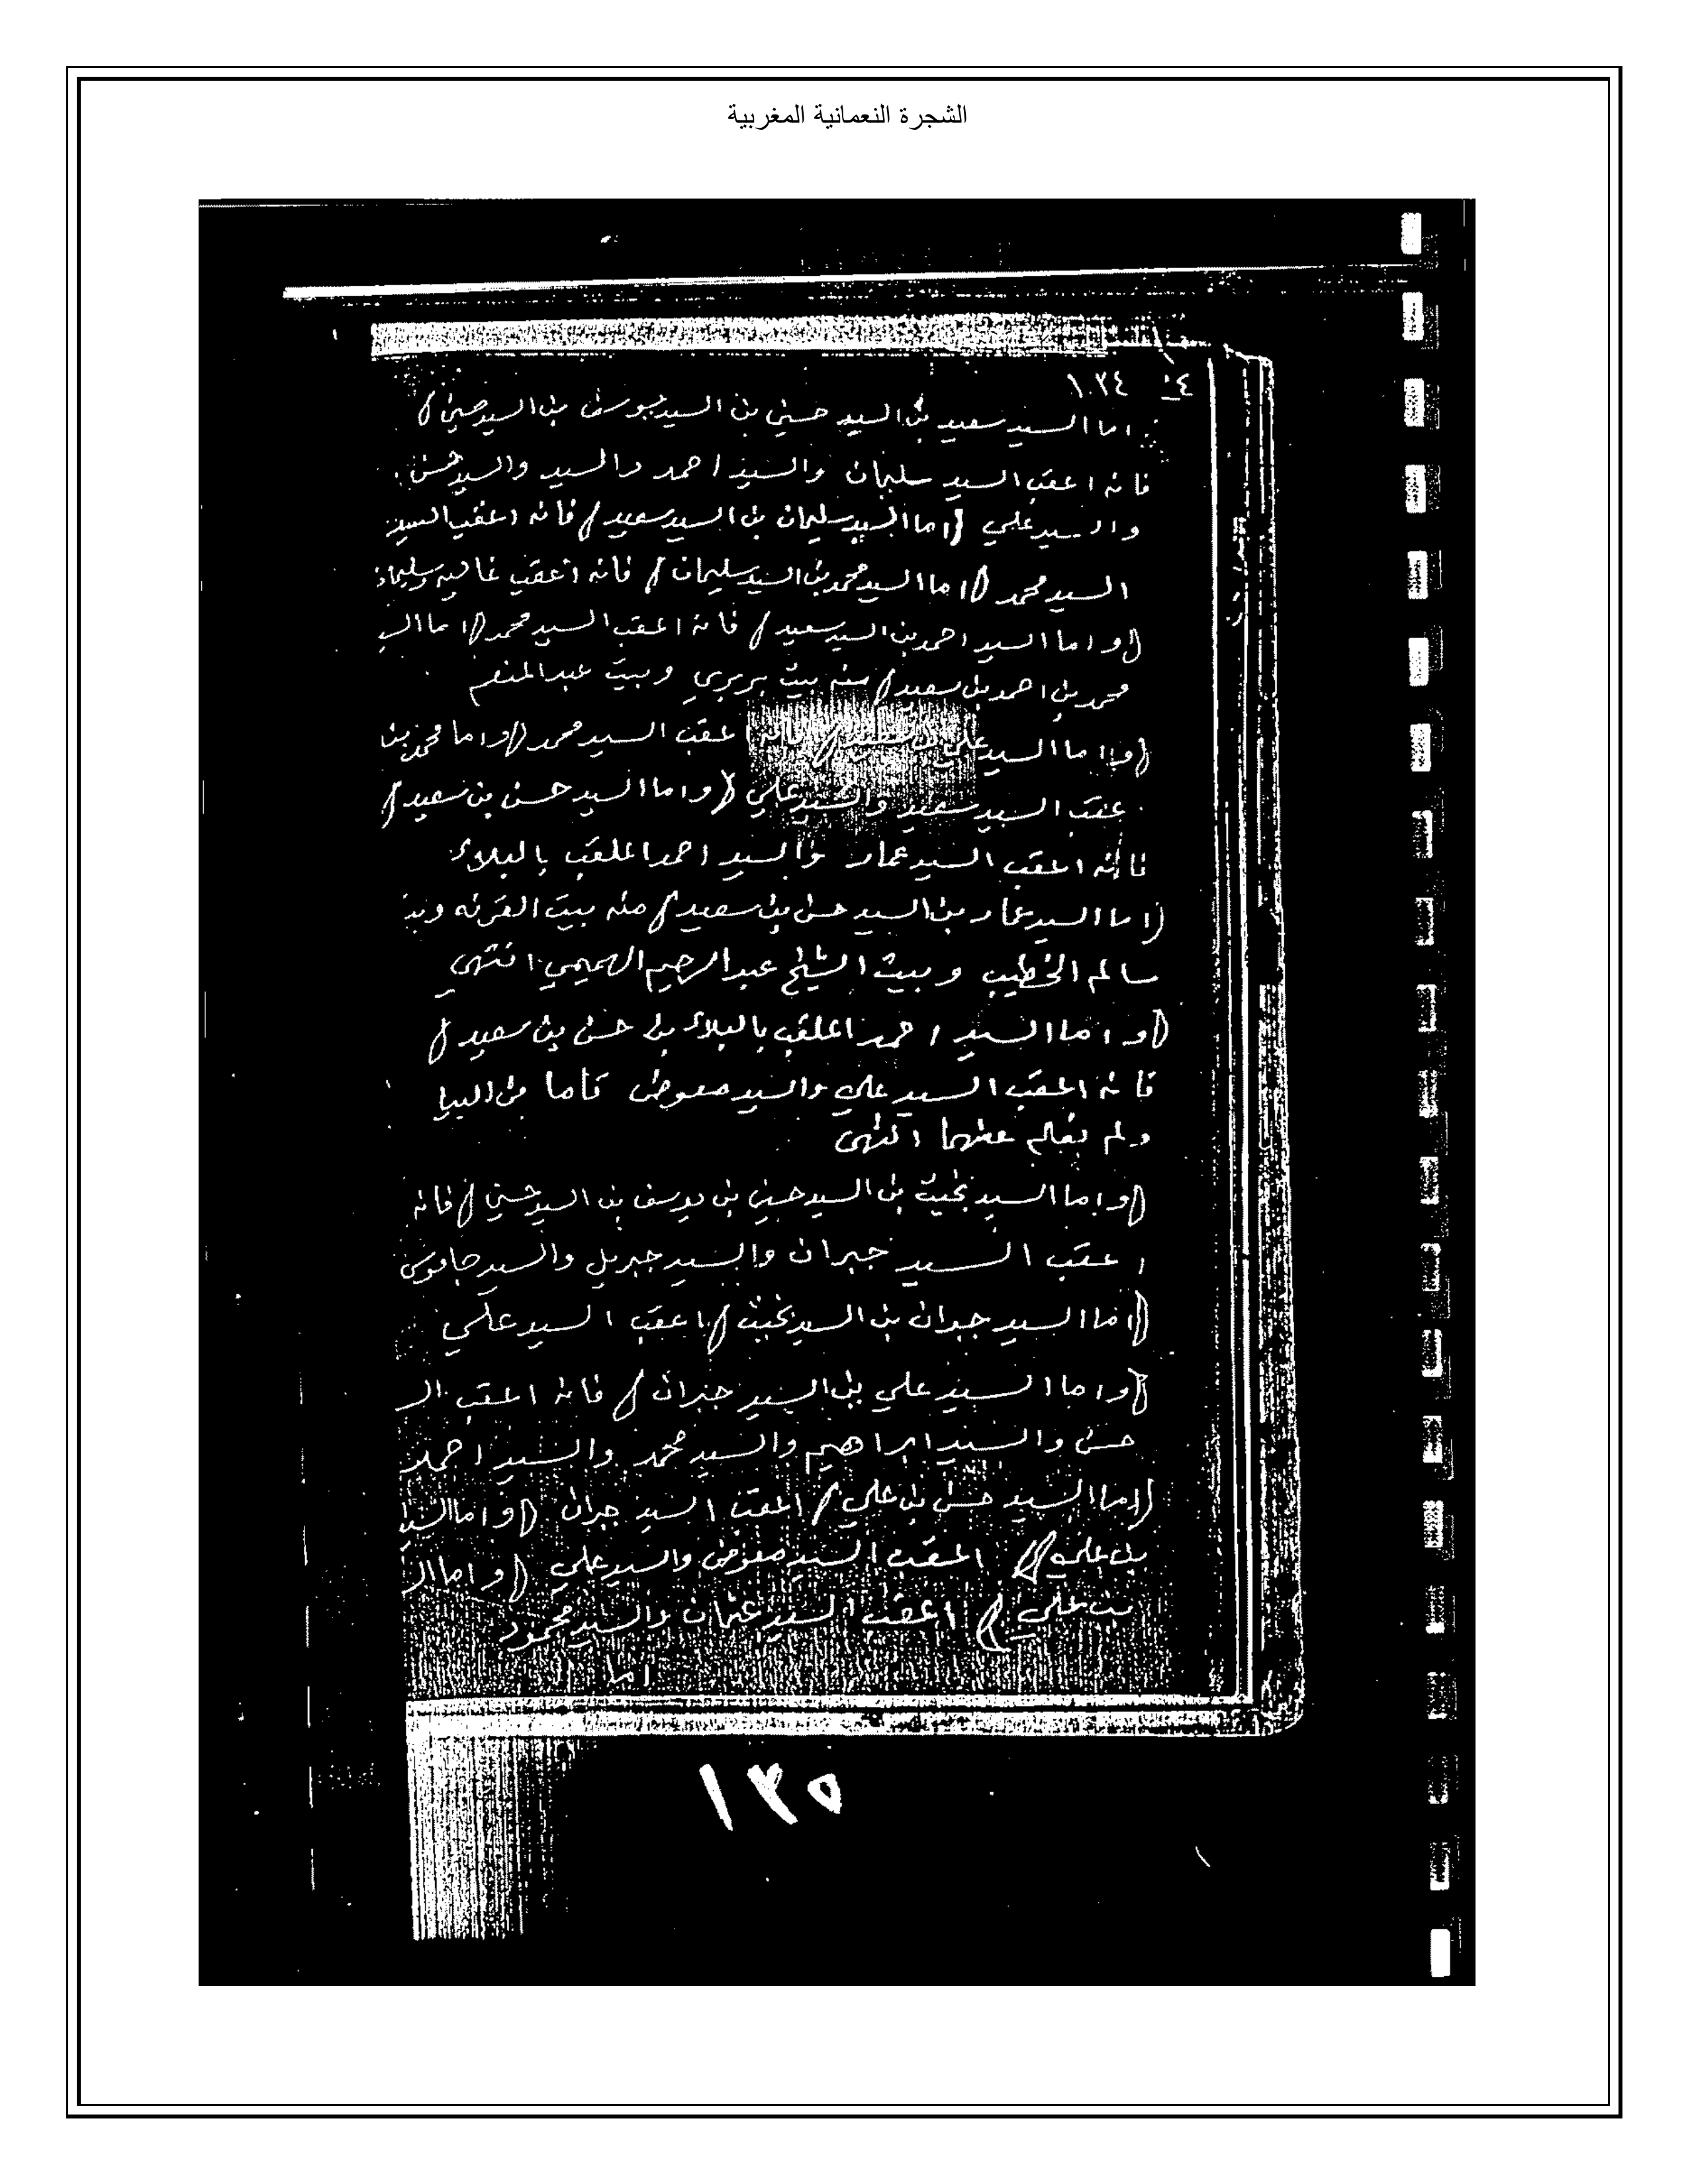 الشجرة النعمانية المغربية
٤ ١٠٣٤
اما السيد سعيد بن السيد حسين بن السيد يوسف بن السيد حسين)
فانه اعقب السيد سليمان والسيد احمد والسيد والسيد حسن
والسيد علي (اما السيد سليمان بن السيد سعيد) فانه اعقب السيد
السيد محمد (اما السيد محمد بن السيد سليمان) فانه اعقب غاليه وسليمان
(واما السيد احمد بن السيد سعيد) فانه اعقب السيد محمد (اما السـ
محمد بن احمد بن سعيد) منه بيت بربري وبيت عبد المنعم
(واما السيد علي بن سعيد) فانه اعقب السيد محمد (واما محمد بن
عقب السيد سعيد والسيد علي (واما السيد حسن بن سعيد)
فانه اعقب السيد عمار والسيد احمد الملقب بالبلاء
(اما السيد عمار بن السيد حسن بن سعيد) منه بيت
سالم الخطيب وبيت الشيخ عبد الرحيم انتهى
(واما السيد احمد الملقب بالبلاء بن حسن بن سعيد)
فانه اعقب السيد علي والسيد معوض
ولم نعلم عقبهما انتهى
(واما السيد بخيت بن السيد حسين بن يوسف بن السيد حسين) فانه
اعقب السيد جبران والسيد جبريل والسيد جاموس
(اما السيد جبران بن السيد بخيت) اعقب السيد علي
(واما السيد علي بن السيد جبران) فانه اعقب الـ
حسن والسيد ابراهيم والسيد محمد والسيد احمد
(اما السيد حسن بن علي) اعقب السيد جبران (واما السيد
بن علي) اعقب السيد معوض والسيد علي (واما الـ
بن علي) اعقب السيد عثمان والسيد محمود
١٣٥